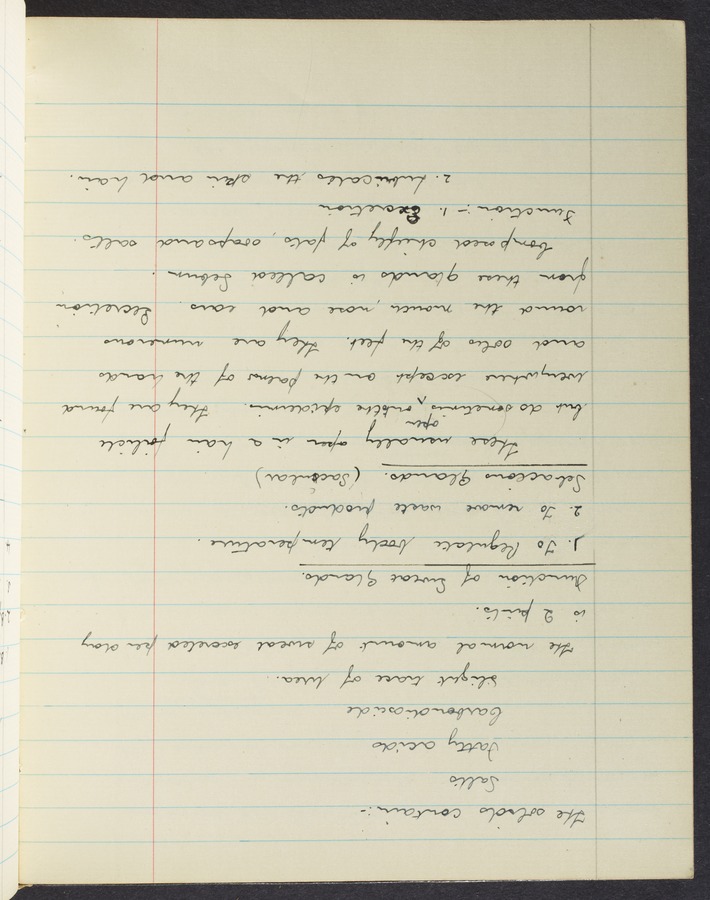 The solids contain :-
Salts
Fatty acids
Carbondioxide
Slight trace of Urea.
The normal amount of sweat excreted per day
is 2 pints.
Function of Sweat Glands.
1. To Regulate body temperature.
2. To remove waste products.
Sebacious Glands. (Saccular)
These usually open in a hair folicle
but do sometimes open onto the epidermis. They are found
everywhere except on the palms of the hands
and soles of the feet. They are numerous
round the mouth, nose and ears. Secretion
from these glands is called Sebum.
Composed chiefly of fats, soaps and salts.
Function :- 1. Excretion
2. Lubricates the skin and hair.